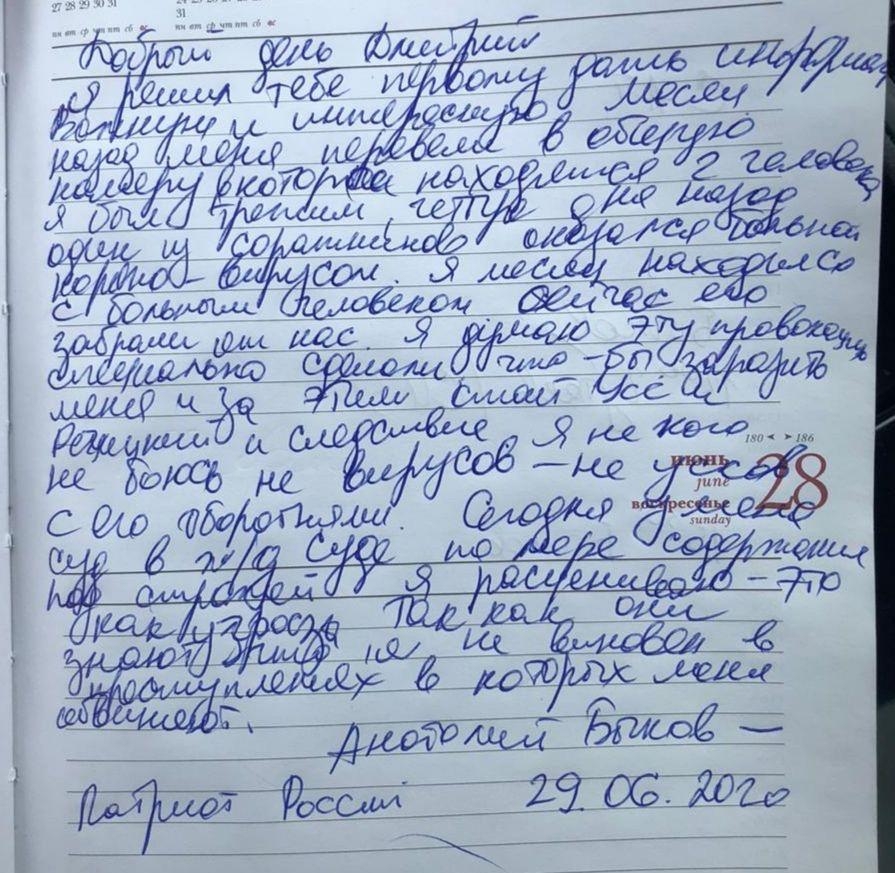 27 28 29 30 31
31
пн вт ср чт пт сб вс
пн вт ср чт пт сб вс
Добрый день Дмитрий
я решил тебе первому дать информац
важную и интересную месяц
назад меня перевели в общую
камеру в которой находятся 2 человека
я был третьим, четыре дня назад
один из соратников оказался больной
короно-вирусом. Я месяц находился
с больным человеком сейчас его
забрали от нас. Я думаю эту провокацию
специально сделали что-бы заразить
меня и за этим стоит Усс и
Резицкий и следствие я не кого
не боюсь не вирусов - не уссов
с его оборотнями. Сегодня у меня
суд в ж/д суде по мере содержания
под стражей я расцениваю - это
как угроза так как они
знают что я не виновен в
преступлениях в которых меня
обвиняют.
Анатолий Быков —
Патриот России 29.06.2020
180 ◄ ► 186
июнь
june
28
воскресенье
sunday